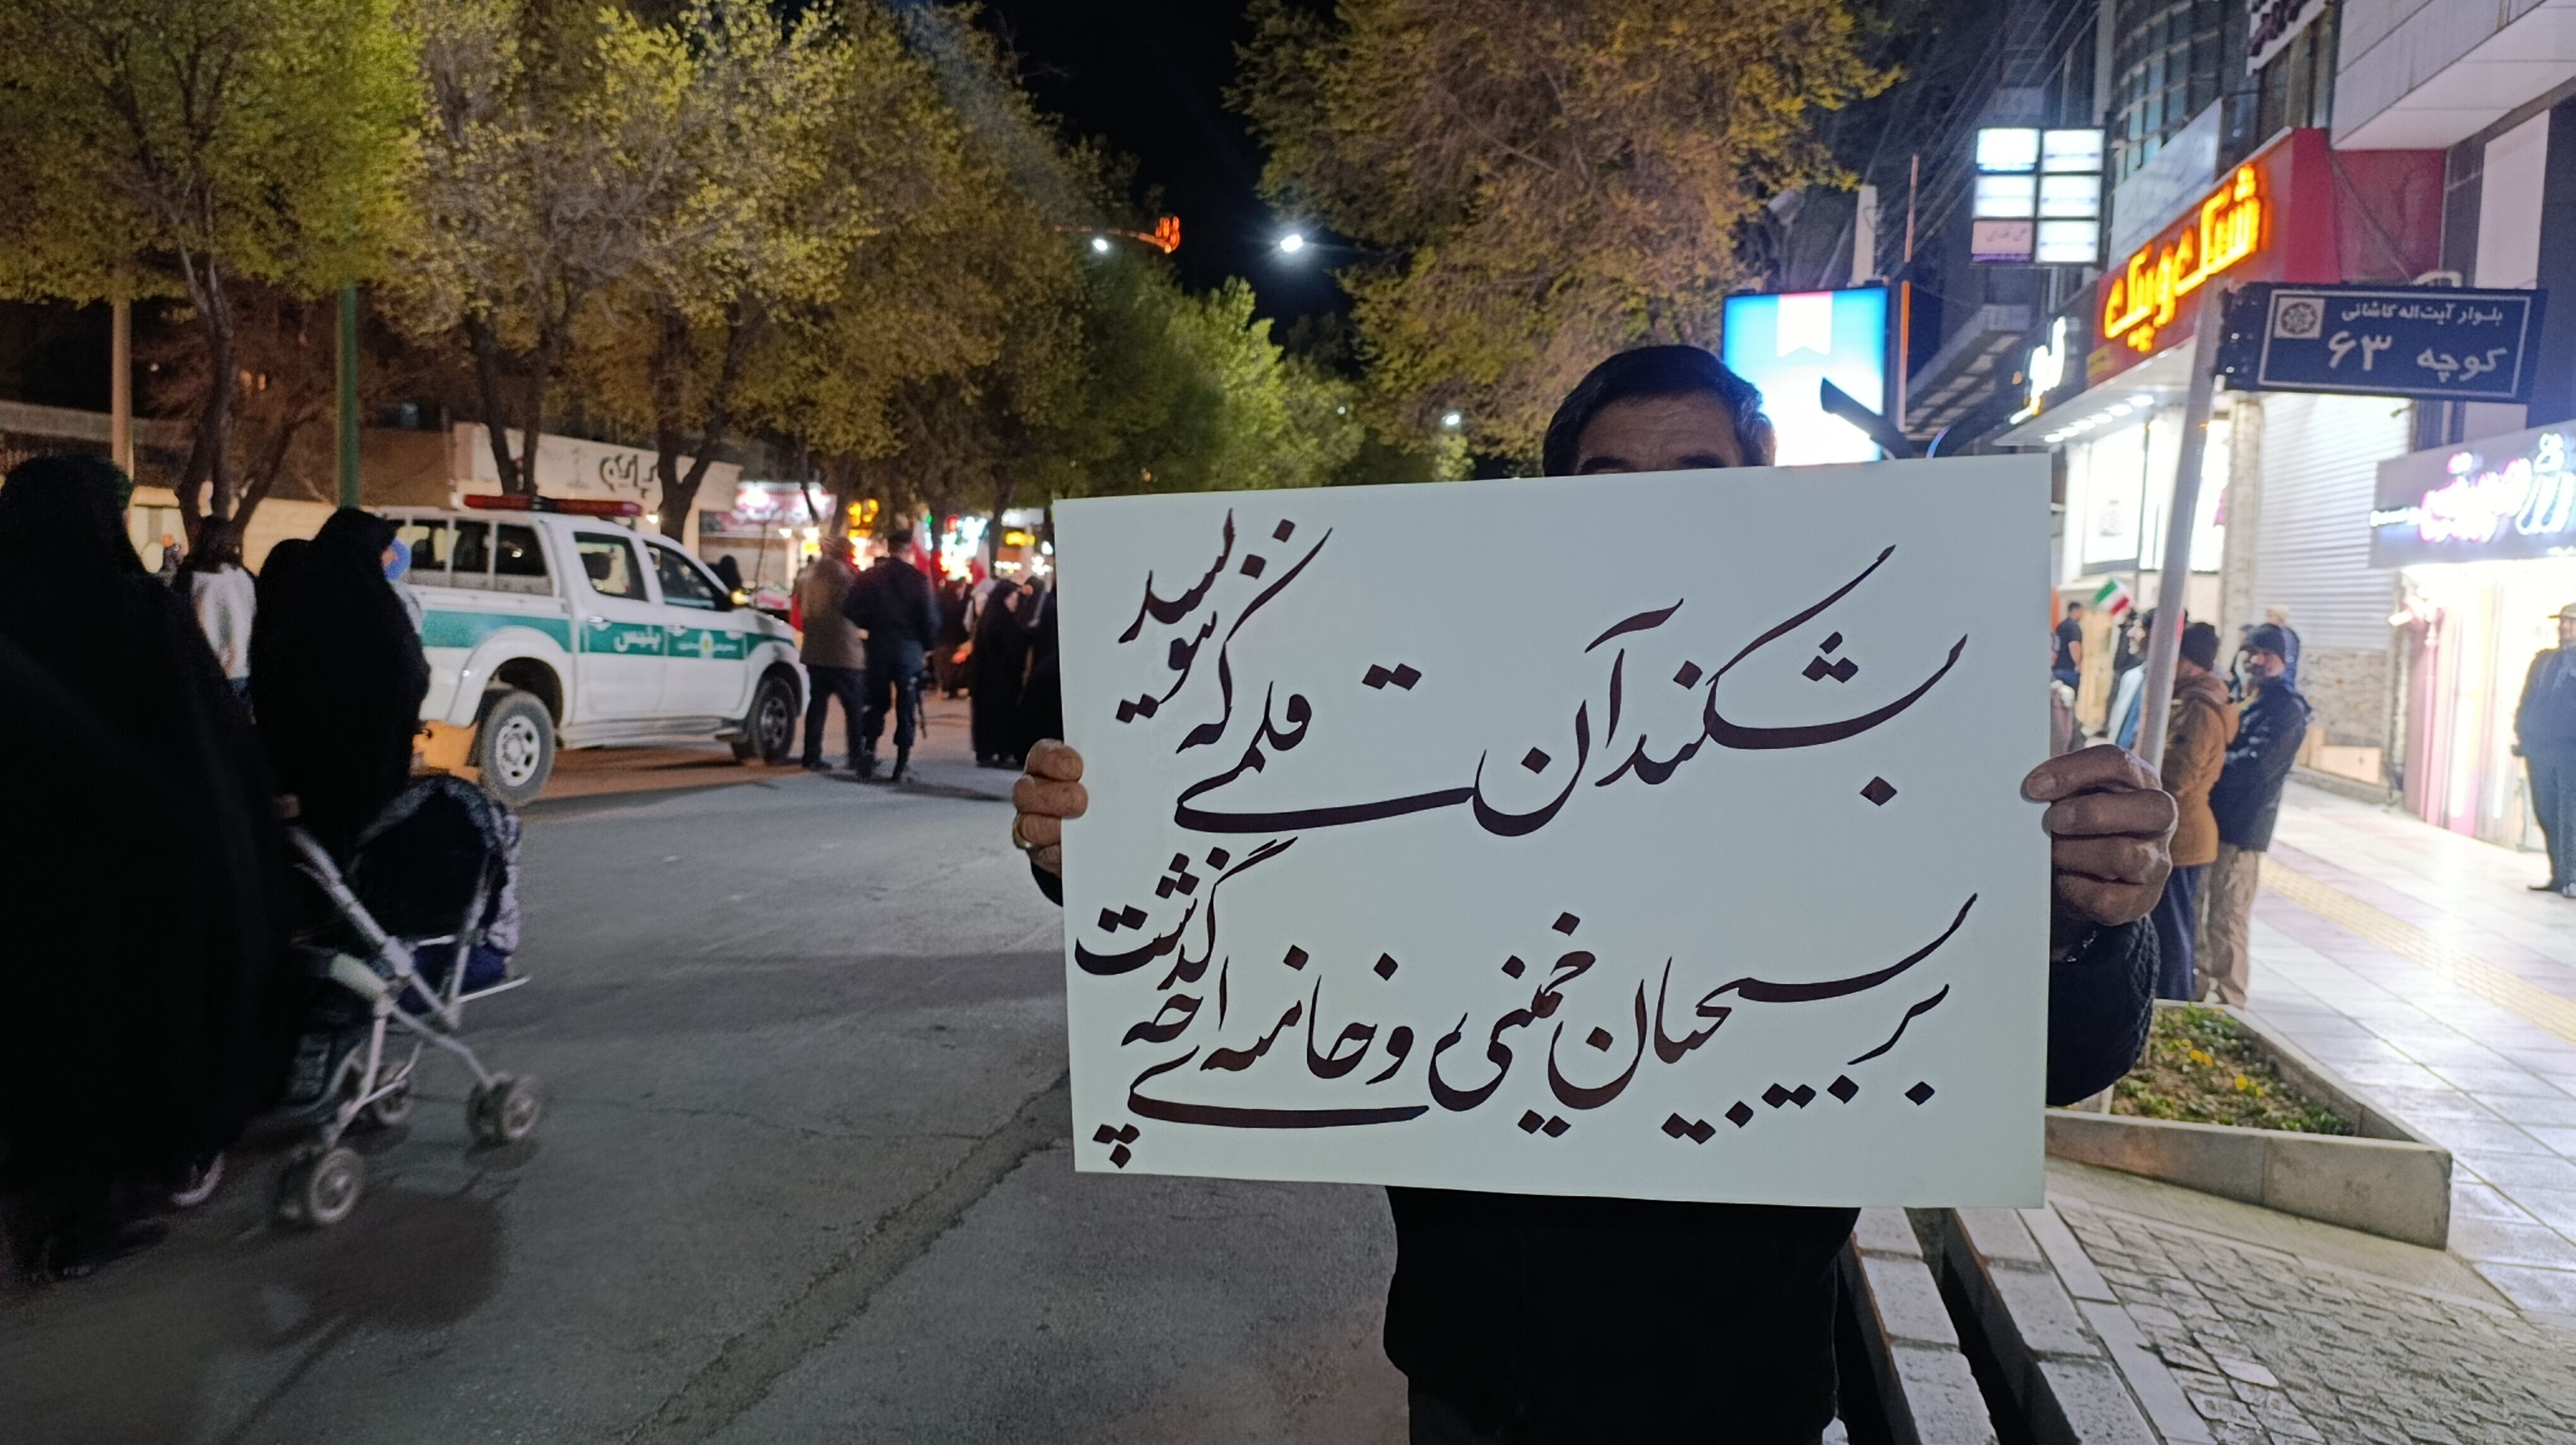 بشکند آن قلمی که ننویسد
بر بسیجیان خمینی و خامنه ای چه گذشت
بلوار آیت اله کاشانی
کوچه ۶۳
پلیس